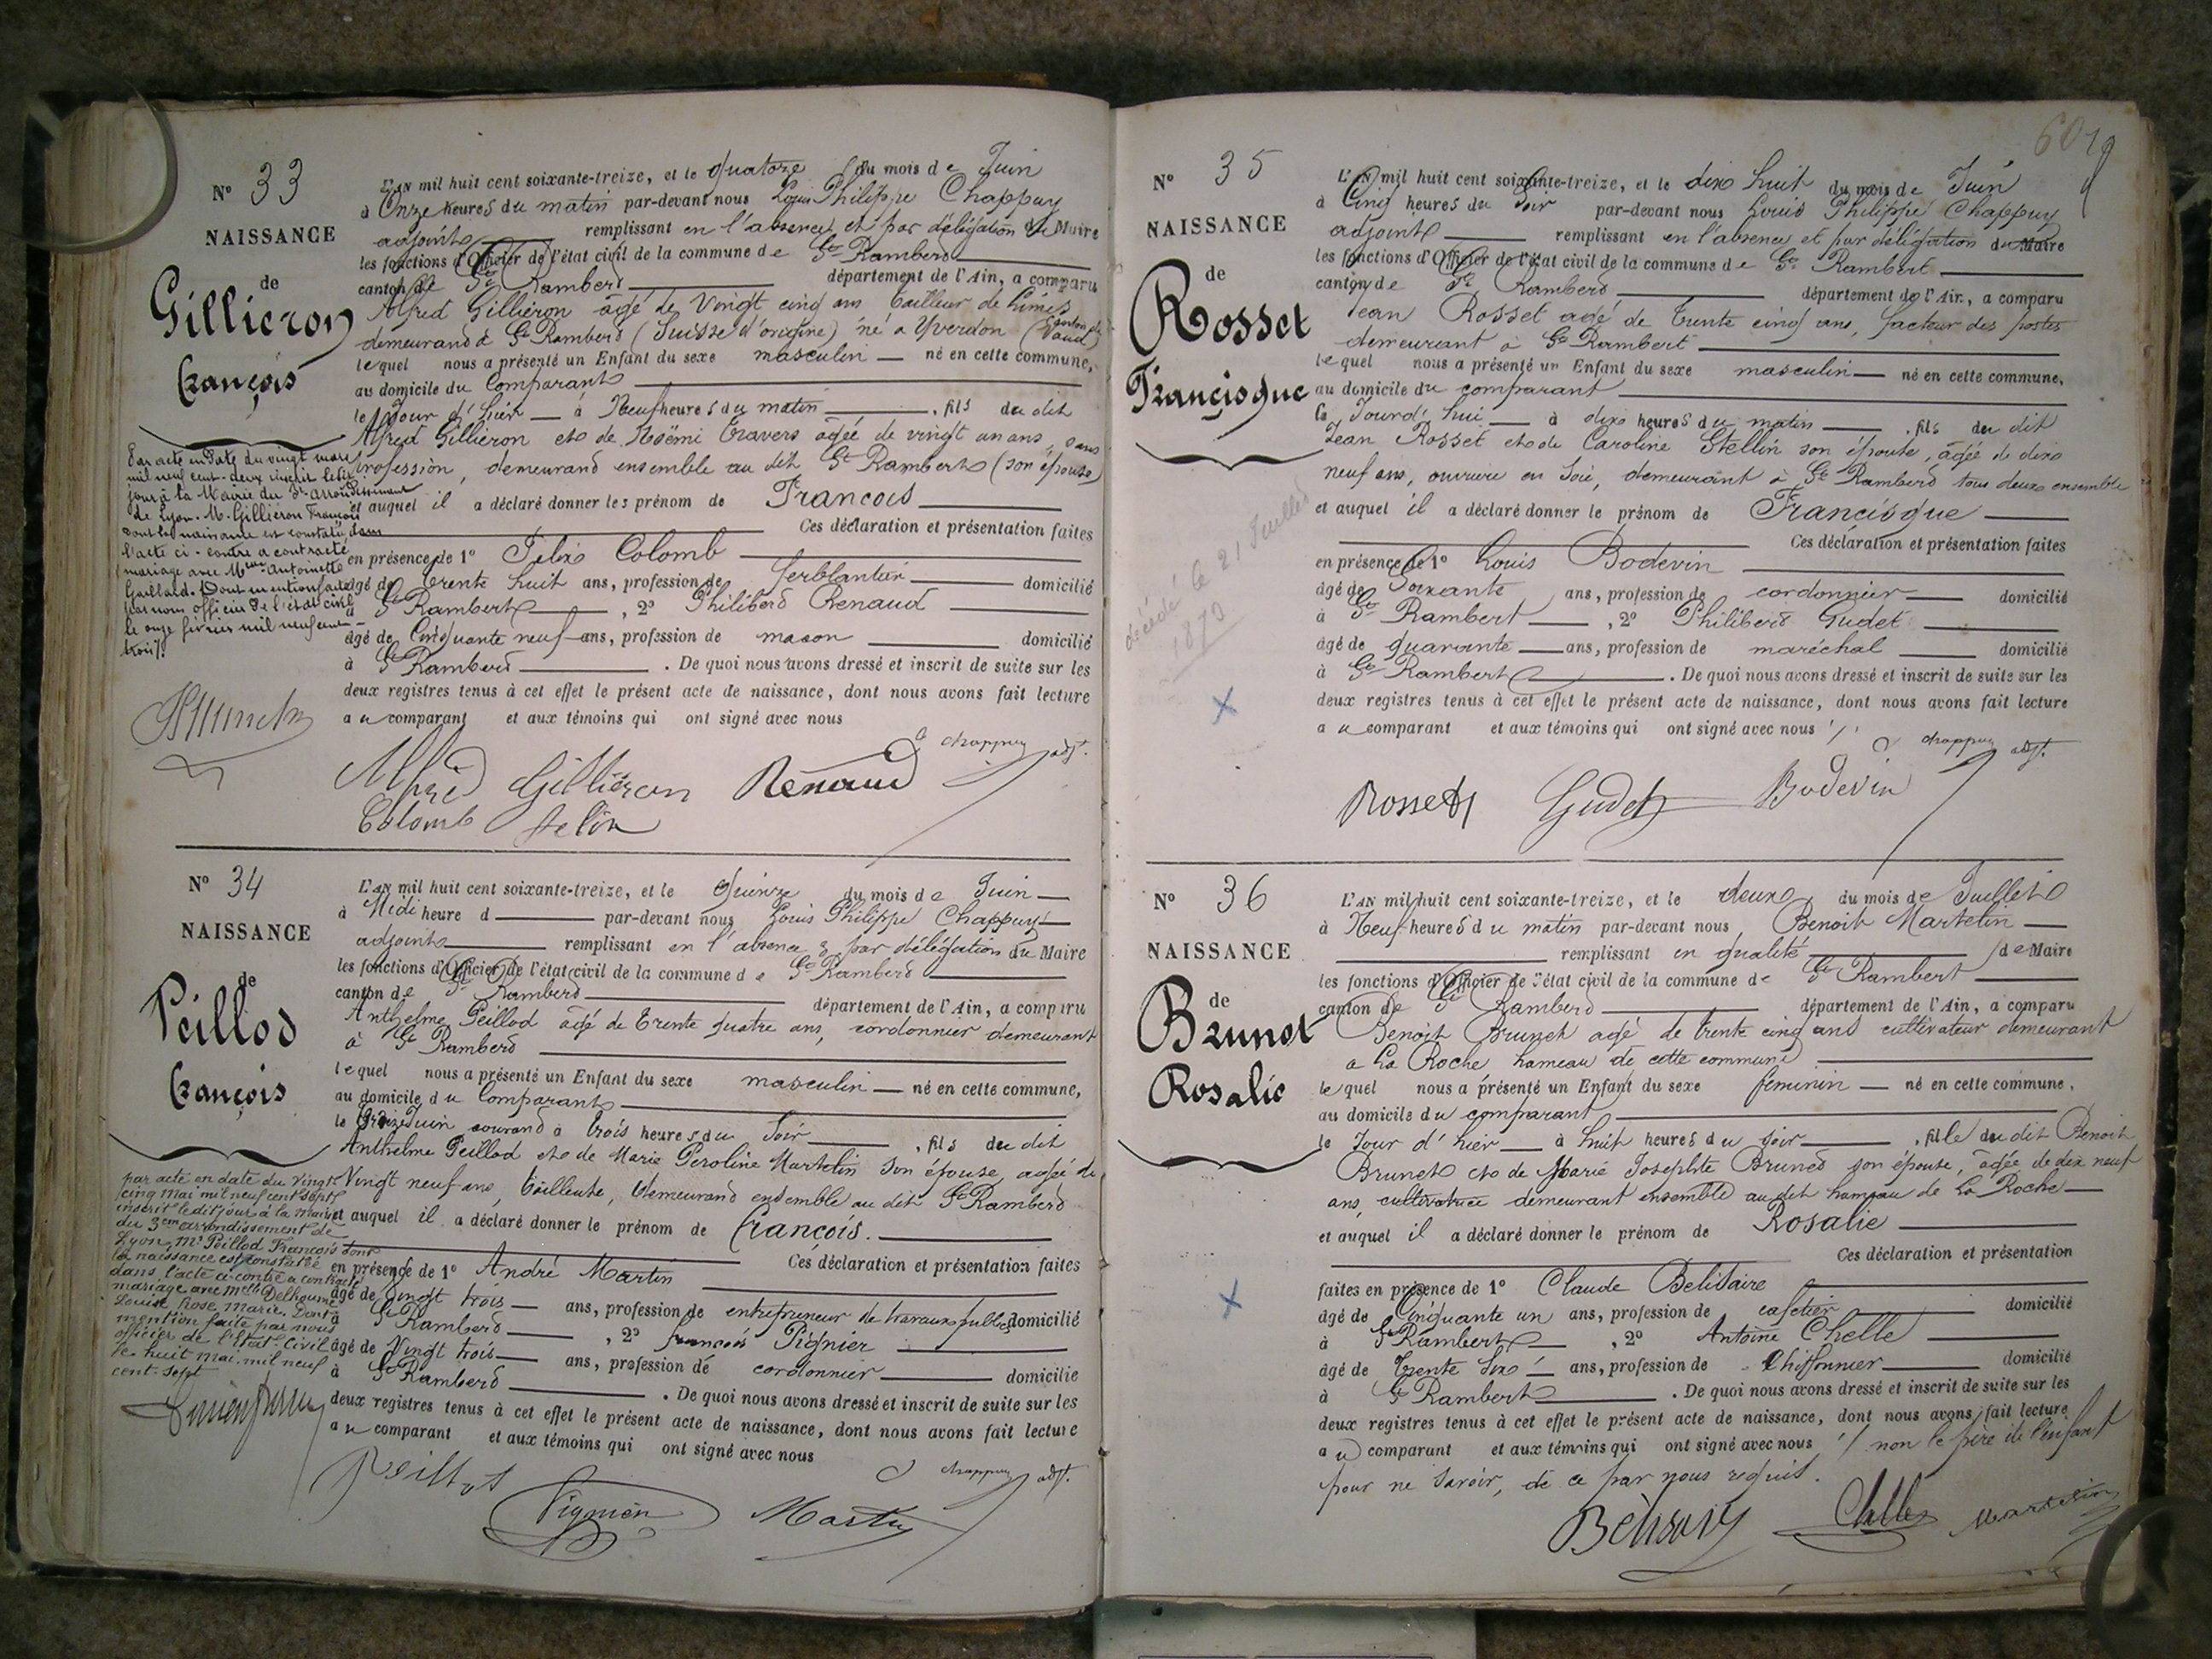 N° 33
NAISSANCE
de
Gilliéron
François
L'AN mil huit cent soixante-treize, et le quatorze du mois de Juin
à Onze heures du matin par-devant nous Louis Philippe Chappuy
adjoint remplissant en l'absence et par délégation du Maire
les fonctions d'Officier de l'état civil de la commune de St Rambert
canton de St Rambert département de l'Ain, a comparu
Alfred Gilliéron âgé de Vingt cinq ans tailleur de Limes
demeurant à St Rambert (Suisse d'origine) né à Yverdon (Canton de Vaud)
lequel nous a présenté un Enfant du sexe masculin né en cette commune,
au domicile du Comparant
le Jour d'hier à Neuf heures du matin , fils du dit
Alfred Gilliéron et de Noëmi Travers âgée de vingt un ans, sans
profession, demeurant ensemble au dit St Rambert (son épouse)
et auquel il a déclaré donner les prénom de Francois
Ces déclaration et présentation faites
en présence de 1° Félix Colomb
âgé de trente huit ans, profession de ferblantier domicilié
à St Rambert , 2° Philibert Renaud
âgé de Cinquante neuf ans, profession de maçon domicilié
à St Rambert . De quoi nous avons dressé et inscrit de suite sur les
deux registres tenus à cet effet le présent acte de naissance, dont nous avons fait lecture
au comparant et aux témoins qui ont signé avec nous
Chappuy adjt.
Alfred Gilliéron Renaud
Colomb félix
Par acte en date du vingt mars
mil neuf cent-deux inscrit le dit
jour à la Mairie du 3e arrondissement
de Lyon. M. Gilliéron François
dont la naissance est constatée dans
l'acte ci-contre a contracté
mariage avec Melle Antoinette
Gaillard. Dont mention faite
par nous officier de l'état civil
le onze février mil neuf cent
trois.
N° 34
NAISSANCE
de
Peillod
François
L'AN mil huit cent soixante-treize, et le Quinze du mois de Juin
à Midi heure d par-devant nous Louis Philippe Chappuy
adjoint remplissant en l'absence & par délégation du Maire
les fonctions d'Officier de l'état civil de la commune de St Rambert
canton de St Rambert département de l'Ain, a comparu
Anthelme Peillod âgé de Trente quatre ans, cordonnier demeurant
à St Rambert
lequel nous a présenté un Enfant du sexe masculin né en cette commune,
au domicile du Comparant
le Treize Juin courant à trois heures du Soir , fils du dit
Anthelme Peillod et de Marie Péroline Martelin son épouse, agée de
Vingt neuf ans, tailleuse, demeurant ensemble au dit St Rambert
et auquel il a déclaré donner le prénom de François.
Ces déclaration et présentation faites
en présence de 1° André Martin
âgé de Vingt trois ans, profession de entrepreneur de travaux publics domicilié
à St Rambert , 2° françois Pignier
âgé de Vingt trois ans, profession de cordonnier domicilié
à St Rambert . De quoi nous avons dressé et inscrit de suite sur les
deux registres tenus à cet effet le présent acte de naissance, dont nous avons fait lecture
au comparant et aux témoins qui ont signé avec nous
Chappuy adjt.
Peillod Pignier Martin
par acte en date du vingt
cinq mai mil neuf cent sept
inscrit le dit jour à la mairie
du 3em arrondissement de
Lyon, Mr Peillod François dont
la naissance est constatée
dans l'acte ci-contre a contracté
mariage avec Melle Delhoume
Louise Rose Marie. Dont
mention faite par nous
officier de l'état-civil
le huit mai mil neuf
cent-sept
N° 35
NAISSANCE
de
Rosset
Françisque
L'AN mil huit cent soixante-treize, et le dix huit du mois de Juin
à Cinq heures du Soir par-devant nous Louis Philippe Chappuy
adjoint remplissant en l'absence et par délégation du Maire
les fonctions d'Officier de l'état civil de la commune de St Rambert
canton de St Rambert département de l'Ain, a comparu
Jean Rosset agé de trente cinq ans, facteur des postes
demeurant à St Rambert
lequel nous a présenté un Enfant du sexe masculin né en cette commune,
au domicile du comparant
le Jourd'hui à dix heures du matin , fils du dit
Jean Rosset et de Caroline Stellin son épouse, âgée de dix
neuf ans, ouvrière en Soie, demeurant à St Rambert tous deux ensemble
et auquel il a déclaré donner le prénom de Francisque
Ces déclaration et présentation faites
en présence de 1° Louis Bodevin
âgé de Soixante ans, profession de cordonnier domicilié
à St Rambert , 2° Philibert Gudet
âgé de quarante ans, profession de maréchal domicilié
à St Rambert . De quoi nous avons dressé et inscrit de suite sur les
deux registres tenus à cet effet le présent acte de naissance, dont nous avons fait lecture
au comparant et aux témoins qui ont signé avec nous
Chappuy adjt.
Rosset Gudet Bodevin
décédé le 21 Juillet
1873
N° 36
NAISSANCE
de
Brunet
Rosalie
L'AN mil huit cent soixante-treize, et le deux du mois de Juillet
à Neuf heures du matin par-devant nous Benoit Martelin
remplissant en qualité de Maire
les fonctions d'Officier de l'état civil de la commune de St Rambert
canton de St Rambert département de l'Ain, a comparu
Benoit Brunet agé de trente cinq ans cultivateur demeurant
à La Roche hameau de cette commune
lequel nous a présenté un Enfant du sexe feminin né en cette commune,
au domicile du comparant
le Jour d'hier à huit heures du soir , fille du dit Benoit
Brunet et de Marie Josephte Brunet son épouse, âgée de dix neuf
ans, cultivatrice demeurant ensemble au dit hameau de La Roche
et auquel il a déclaré donner le prénom de Rosalie
Ces déclaration et présentation
faites en présence de 1° Claude Belisaire
âgé de Cinquante un ans, profession de cafetier domicilié
à St Rambert , 2° Antoine Chelle
âgé de Trente Six ans, profession de Chiffonnier domicilié
à St Rambert . De quoi nous avons dressé et inscrit de suite sur les
deux registres tenus à cet effet le présent acte de naissance, dont nous avons fait lecture
au comparant et aux témoins qui ont signé avec nous non le père de l'enfant
pour ne savoir, de ce par nous requis.
Chelle Martelin